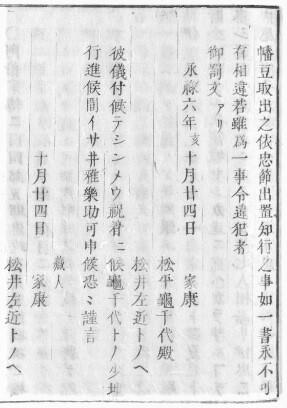 幡豆取出之依忠節出置知行之事如一書永不可
有相違若雖爲一事令違犯者
御罰文アリ
永祿六年亥十月廿四日　家康
松平龜千代殿
松井左近トノヘ
彼儀付候テシンメウ祝着ニ候龜千代トノ少地
行進候間イサ井雅樂助可申候恐ミ謹言
藏人
十月廿四日　家康
松井左近トノヘ